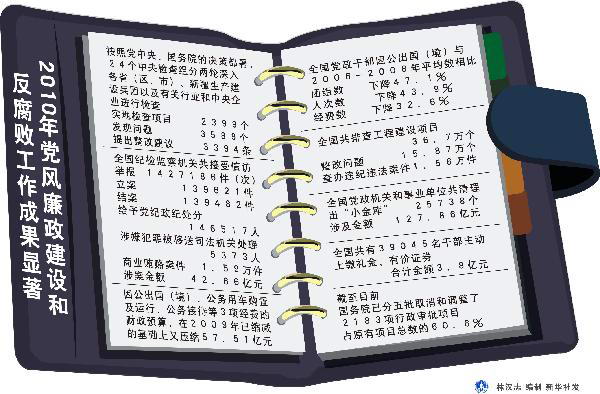 2010年党风廉政建设和
反腐败工作成果显著
按照党中央、国务院的决策部署，
24个中央检查组分两轮深入
各省（区、市）、新疆生产建
设兵团以及有关行业和中央企
业进行检查
实地检查项目 2399个
发现问题 3599个
提出整改建议 3394条
全国纪检监察机关共接受信访
举报 1427186件（次）
立案 139621件
结案 139482件
给予党纪政纪处分
146517人
涉嫌犯罪被移送司法机关处理
5373人
商业贿赂案件 1.59万件
涉案金额 42.66亿元
因公出国（境）、公务用车购置
及运行、公务接待等3项经费的
财政预算，在2009年已缩减
的基础上又压缩57.51亿元
全国党政干部因公出国（境）与
2006-2008年平均数相比
团组数 下降47.1%
人次数 下降43.9%
经费数 下降32.6%
全国共排查工程建设项目
36.7万个
整改问题 15.87万个
查办违纪违法案件1.56万件
全国党政机关和事业单位共清理
出“小金库” 25738个
涉及金额 127.86亿元
全国共有39045名干部主动
上缴礼金、有价证券
合计金额3.8亿元
截至目前
国务院已分五批取消和调整了
2183项行政审批项目
占原有项目总数的60.6%
林汉志 编制 新华社发